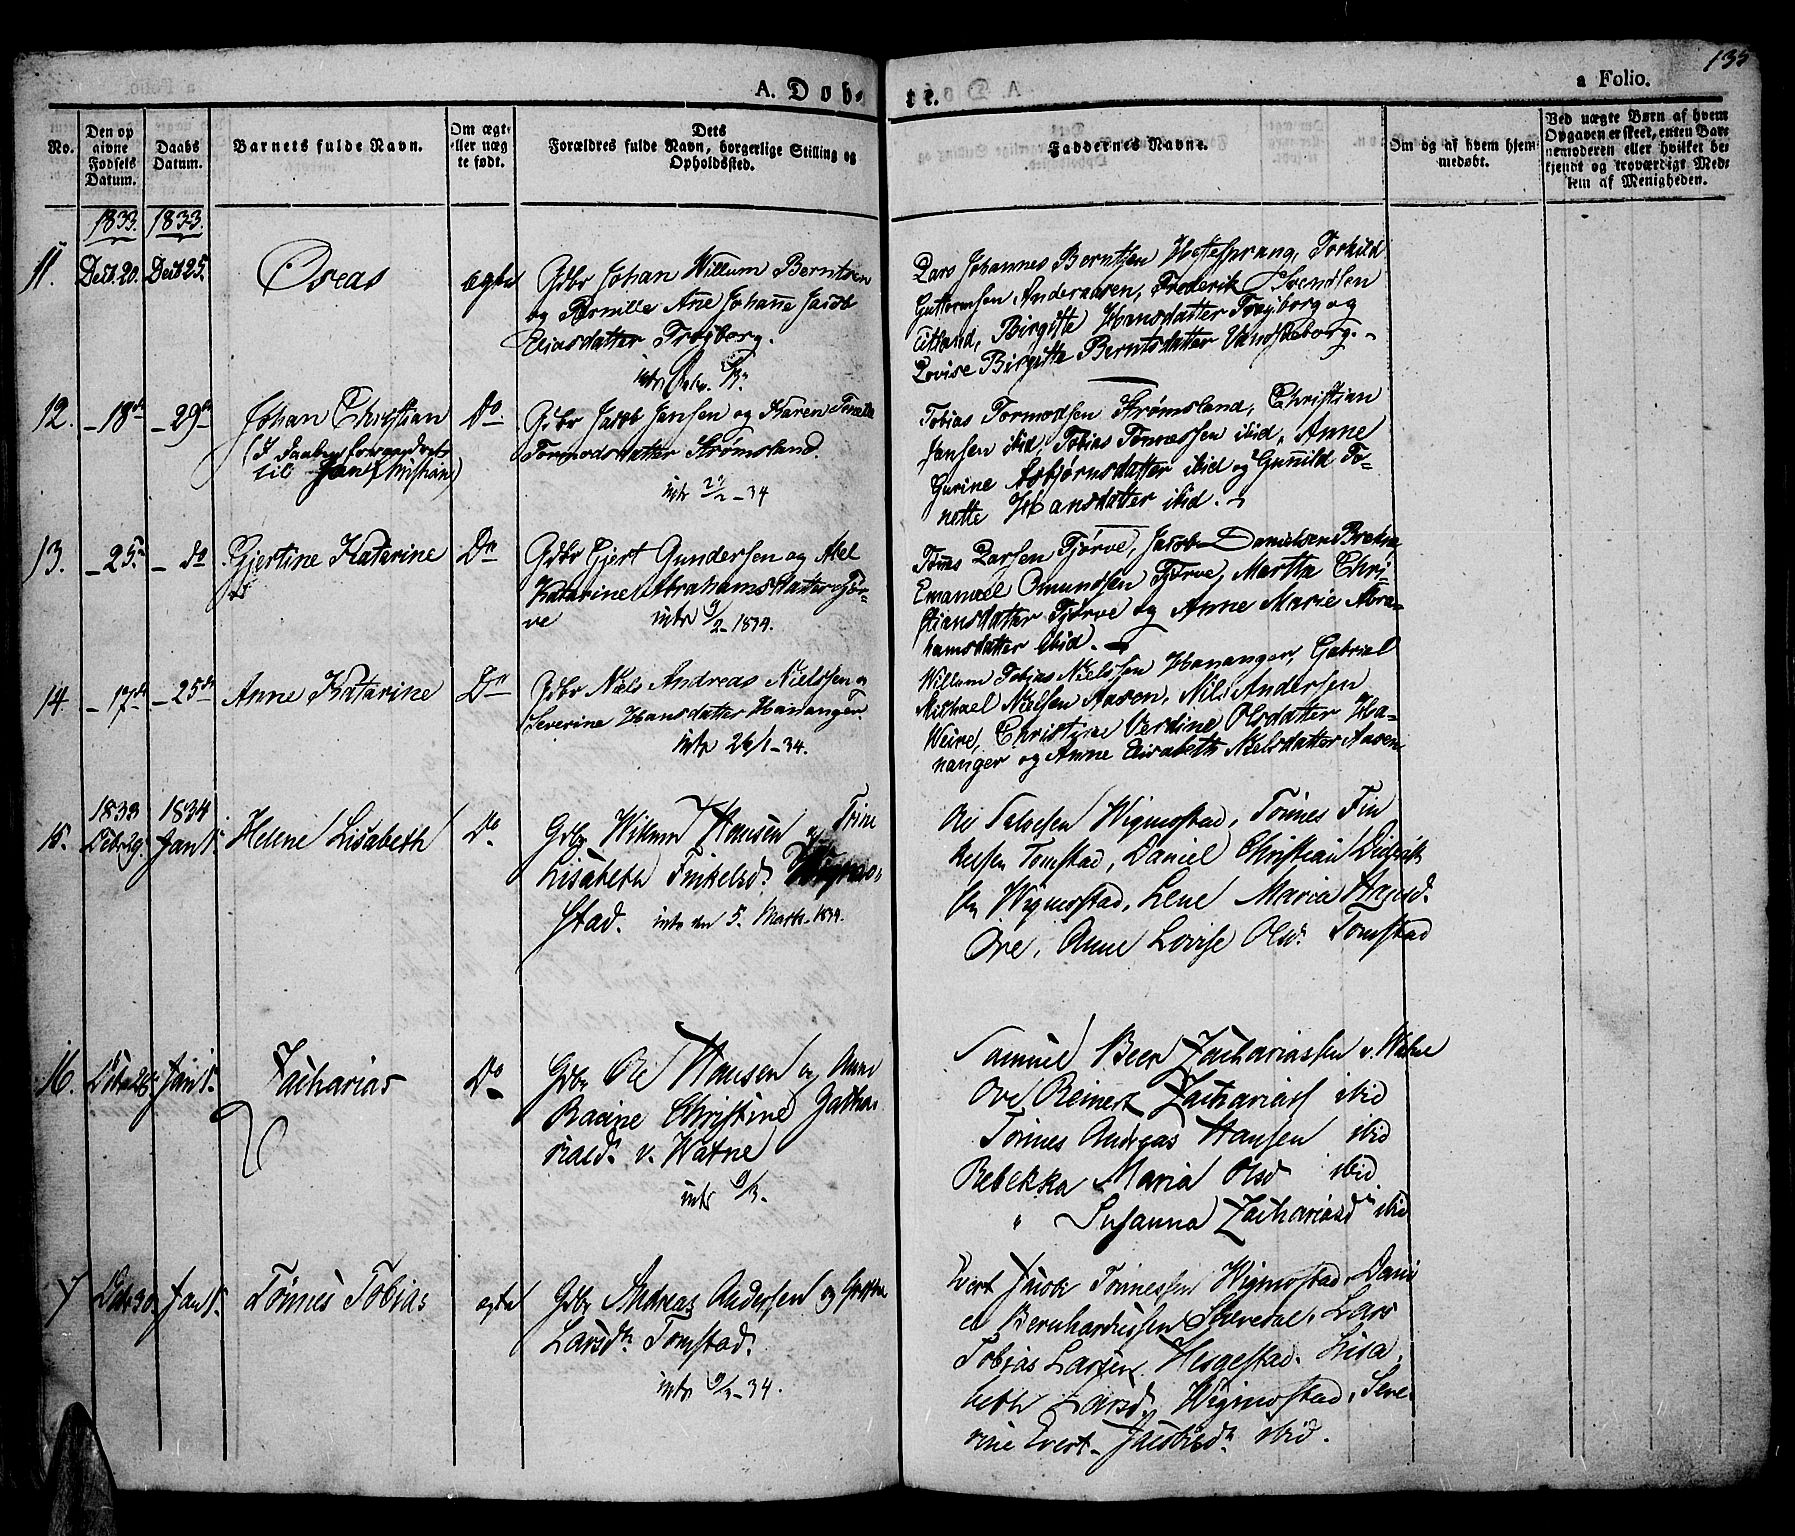 135
A. Døb-
te.
a Folio.
No.
Den op
givne
Fødsels
Datum.
Daabs
Datum.
Barnets fulde Navn.
Om ægt-
eller uæg
te født.
Dets
Forældres fulde Navn, borgerlige Stilling og
Opholdssted.
Faddernes Navne.
Om og af hvem hjem-
medøbt.
Ved uægte Børn af hvem
Opgaven er skeet, enten Bar-
nemoderen eller hvilket be-
kjendt og troværdigt Med-
lem af Menigheden.
1833. 1833.
11. Decb. 20. Decb 25. Oseas ægte
Gdbr Johan Willum Berntsen
og Pernille Ane Johanne Jacob
Eliasdatter Trøyborg.
Lars Johannes Berntsen Hestesprang, Torkild
Guttormsen Anderaasen, Frederik Svendsen
Eitland, Birgitte Hansdatter Trøyborg og
Lovise Birgitte Berntsdatter Vandsteborg.
12. -18de -29de Johan Christian Do.
til Jan Christian)
Gdbr Jacob Jansen og Karen
Tormodsdatter Strømsland.
intr -34
Tobias Tormodsen Strømsland, Christian
Jansen ibid, Tobias Tønnessen ibid, Anne
Gurine Asbjørnsdatter ibid og Gunild To-
nette Hansdatter ibid.
13. -25. - do Gjertine Katarine Do
Gdbr Gjert Gundersen og Abel
Katarine Abrahamsdatter Fjør-
ve intr 9/2-1834.
Tønnes Larsen Fjørve, Jacob Danielsen
Emanuel Omundsen Fjørve, Martha Chri-
stiansdatter Fjørve og Anne Marie Abra-
hamsdatter ibid.
14. -17de -25de Anne Katarine Do
Gdbr Niels Andreas Nielssen og
Severine Hansdatter Hananger.
intr 26/1-34.
Willum Tobias Nielssen Hananger, Gabriel
Michael Nielsen Aasen, Nils Andersen
Weire, Christine Verdine Olsdatter Ha-
nanger og Anne Elisabeth Nielsdatter Aasen
1833 1834
15. Decbr 29. Jan 1. Helene Lisabeth Do
Gdbr Willum Hansen og Trine
Lisabeth Finkelsd. Wigmo-
stad. intr den 5. Marts 1834.
Ole Wigmostad, Tönnes Fin
kelsen Tomstad, Daniel Christian Didrik
sen Wigmostad, Lene Maria
Ore, Anne Lovise Olsd. Tomstad
16. Jan 1. Zacharias Do
Gdbr Ole Hansen og Anne
Racine Christine Zacha
riasd. v. Watne
intr 9/3.
Samuel Beer Zachariassen v. Watne
Ove Reinert Zacharias ibid
Tönnes Andreas Hansen ibid
Rebekka Maria Olsd ibid
" Susanna Zachariasd ibid
7 Decb 30. Jan 1. Tönnes Tobias ægte
Gdbr Andreas Andersen og
Larsdr Tomstad.
intr -34.
Evert Jacob Tönnessen Wigmostad, Dani
el Bernhardussen Lars
Tobias Larsen Hegestad. Lisa
beth Larsd. Wigmostad, Seve
rine Evert-Jacobsd. ibid.